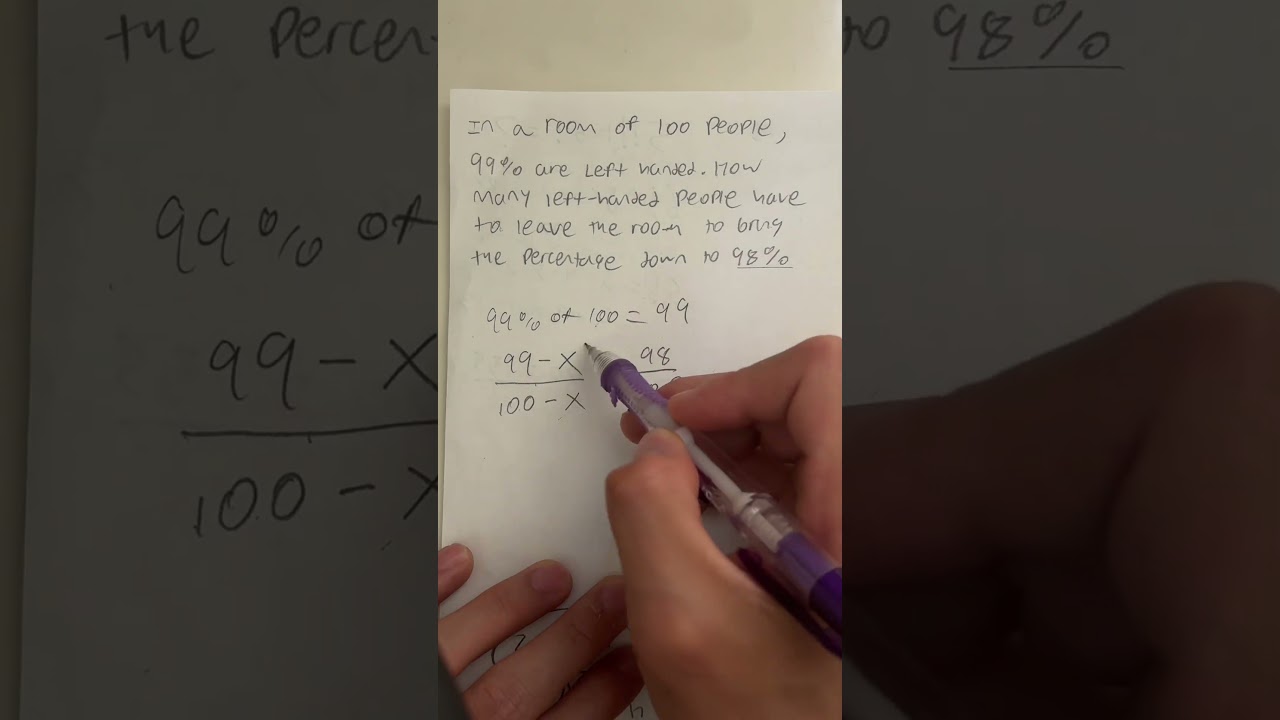 In a room of 100 People,
99% are Left handed. How
Many left-handed People have
to leave the room to bring
the Percentage down to 98%
99% of 100 = 99
99 - X 98
100 - X